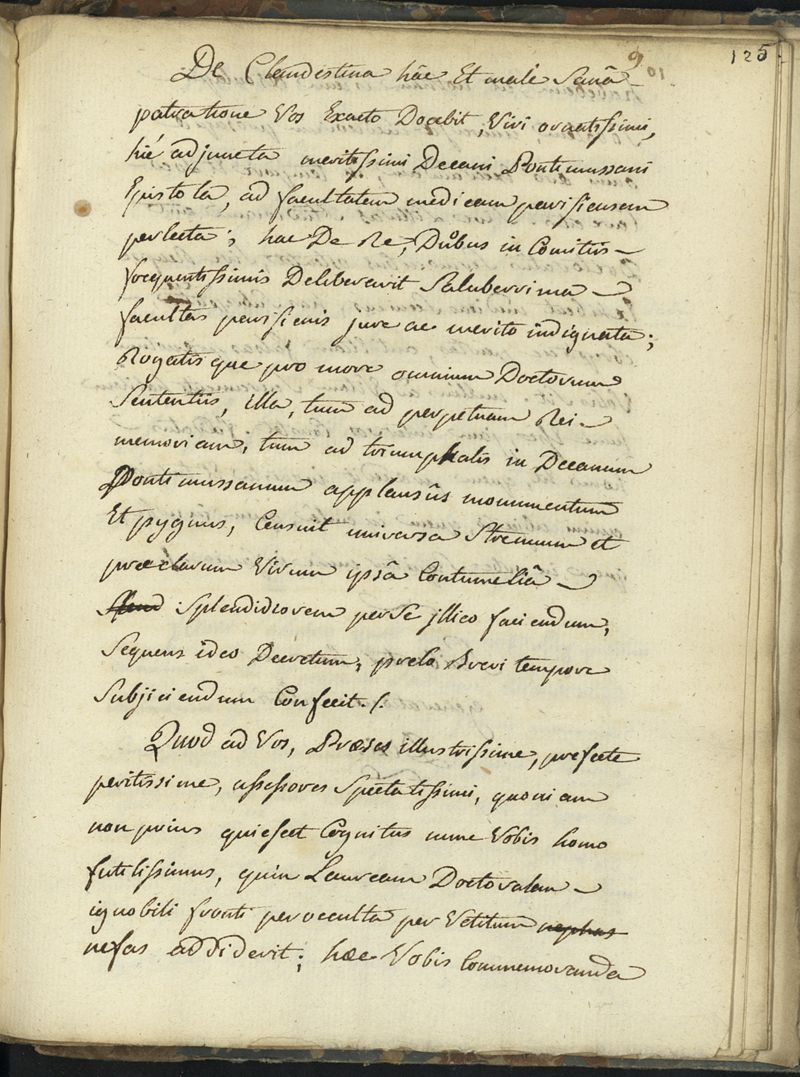 9
125
De Clandestina hâc Et malè Sanâ
patratione Vos Exacto Docebit, Viri ornatissimi,
hîc adjuncta meritissimi Decani Pontimussani
Epistola, ad facultatem medicam parisiensem
perlecta; hac De Re, Duobus in Comitiis
frequentissimis Deliberavit Saluberrima
facultas parisiensis jure ac merito indignata;
Rogatisque pro more omnium Doctorum
Sententiis, illa, tum ad perpetuam Rei
memoriam, tum ad triumphalis in Decanum
Pontimussanum applausûs monumentum
Et pygnus, Censuit universa Strenuum et
præclarum Virum ipsâ Contumeliâ
Splendidiorem per Se illico faciendum,
Sequens ideo Decretum, prelo Brevi tempore
Subjiciendum Confecit./.
Quod ad Vos, Præses illustrissime, præfecte
peritissime, assessores Spectatissimi, quoniam
non prius quiescet Cognitus nunc Vobis homo
futilissimus, quin Lauream Doctoralem
ignobili fronti per occulta per Vetitum nephas
nefas addiderit; hæc Vobis Commemoranda